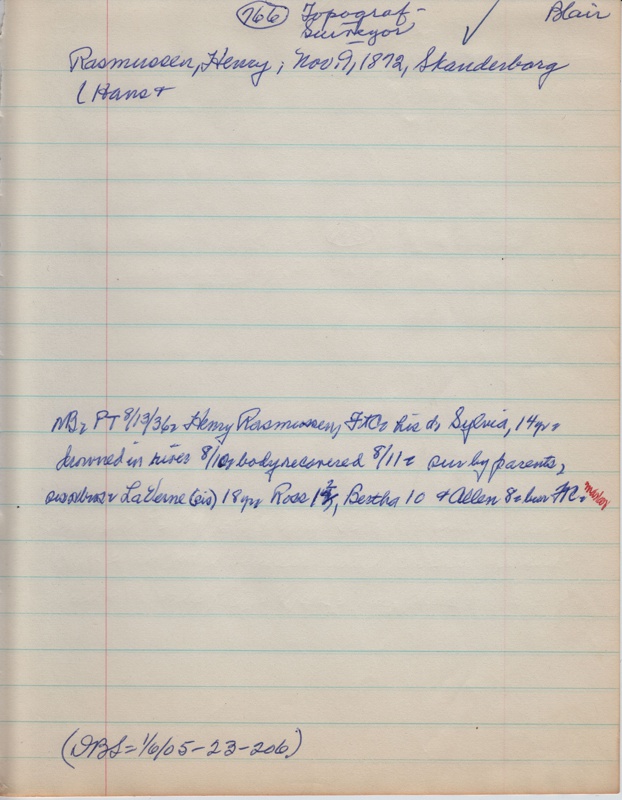 766 Topograf- Blair
Surveyor
Rasmussen, Henry; Nov. 9, 1872, Skanderborg
(Hans +
NB= PT 8/13/36= Henry Rasmussen, his d, Sylvia, 14yr=
drowned in river 8/10= body recovered 8/11= sur by parents,
LaVerne (sis) 18yr Ross, Bertha 10 + Allen 8= bur FR=
(DBS=1/6/05-23-206)